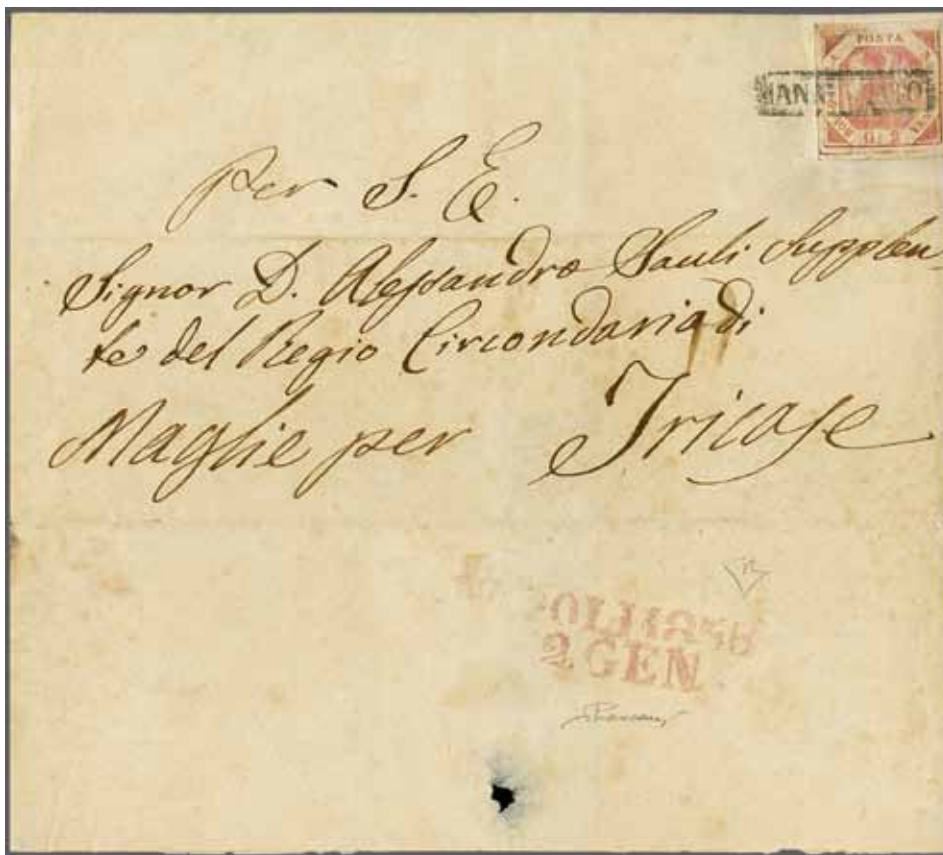 POSTA
ANNULLATO
G. 2
Per S. E.
Signor D. Alessandro Sauli Supplen-
te del Regio Circondario di
Maglie per Tricase
2 GEN